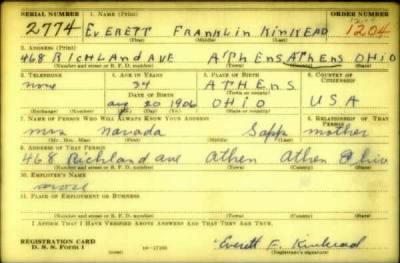 SERIAL NUMBER 1. NAME (Print) ORDER NUMBER
2774 EVERETT FRANKLIN KINKEAD 1204
(First) (Middle) (Last)
2. ADDRESS (Print)
468 RICHLAND AVE ATHENS ATHENS OHIO
(Number and street or R. F. D. number) (Town) (County) (State)
3. TELEPHONE 4. AGE IN YEARS 5. PLACE OF BIRTH 6. COUNTRY OF CITIZENSHIP
none 34 ATHENS
DATE OF BIRTH (Town or county)
Aug 20 1906 OHIO USA
(Exchange) (Number) (Mo.) (Day) (Yr.) (State or country)
7. NAME OF PERSON WHO WILL ALWAYS KNOW YOUR ADDRESS 8. RELATIONSHIP OF THAT PERSON
mrs Navada Sapp mother
(Mr., Mrs., Miss) (First) (Middle) (Last)
9. ADDRESS OF THAT PERSON
468 Richland ave Athen Athen Ohio
(Number and street or R. F. D. number) (Town) (County) (State)
10. EMPLOYER'S NAME
none
11. PLACE OF EMPLOYMENT OR BUSINESS
(Number and street or R. F. D. number) (Town) (County) (State)
I AFFIRM THAT I HAVE VERIFIED ABOVE ANSWERS AND THAT THEY ARE TRUE.
REGISTRATION CARD
D. S. S. Form 1 Everett F. Kinkead
(Registrant's signature)